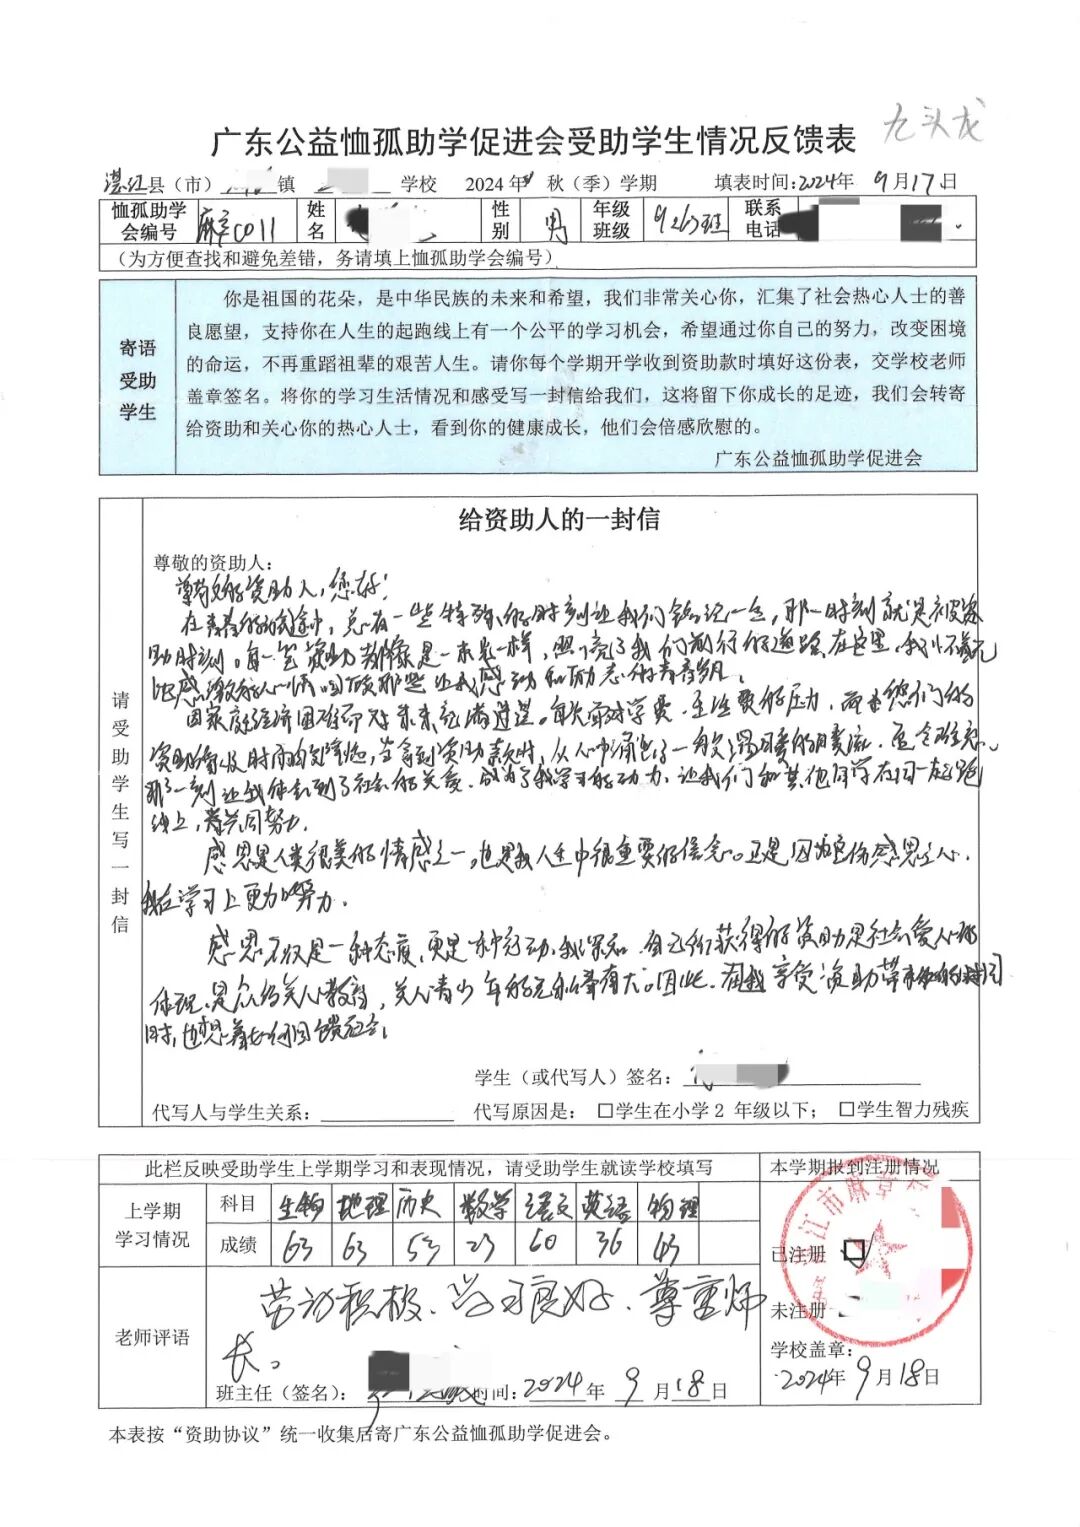 九头龙
广东公益恤孤助学促进会受助学生情况反馈表
湛江县（市） 镇 学校 2024年 秋（季）学期 填表时间:2024年9月17日
恤孤助学会编号 麻章C011 姓名 性别 男 年级班级 9.2(6)班 联系电话
（为方便查找和避免差错，务请填上恤孤助学会编号）
寄语受助学生
你是祖国的花朵，是中华民族的未来和希望，我们非常关心你，汇集了社会热心人士的善
良愿望，支持你在人生的起跑线上有一个公平的学习机会，希望通过你自己的努力，改变困境
的命运，不再重蹈祖辈的艰苦人生。请你每个学期开学收到资助款时填好这份表，交学校老师
盖章签名。将你的学习生活情况和感受写一封信给我们，这将留下你成长的足迹，我们会转寄
给资助和关心你的热心人士，看到你的健康成长，他们会倍感欣慰的。
广东公益恤孤助学促进会
请受助学生写一封信
给资助人的一封信
尊敬的资助人：
尊敬的资助人，您好！
在青春的旅途中，总有一些特殊的时刻让我们铭记一生，那一时刻就是被资
助时刻。每一笔资助都像是一束光一样，照亮了我们前行的道路，在这里，我以不
比感激的心情回顾那些让我感动和励志的青春岁月。
因家庭经济困难而对未来充满迷茫。每次面对学费、生活费的压力，而您们的
资助像及时雨的，当拿到资助款时，从心中涌起了一般温暖的暖流
那一刻让我体会到了社会的关爱，成为了我学习的动力，让我们和其他同学在同一起跑
线上，共同努力。
感恩是人类很美的情感之一，也是我人生中很重要的信念。正是因为感恩之心，
我在学习上更加努力。
感恩不仅是一种态度，更是行动，我深知自己所获得的资助是社会爱心的
体现，是众多关心教育，关心青少年的无私奉献。因此，在我享受资助带来的同
时，也想着如何回馈社会。
学生（或代写人）签名：
代写人与学生关系： 代写原因是：□学生在小学2 年级以下； □学生智力残疾
此栏反映受助学生上学期学习和表现情况，请受助学生就读学校填写 本学期报到注册情况
上学期学习情况
科目 生物 地理 历史 数学 语文 英语 物理
成绩 63 63 53 23 60 36 43
老师评语
劳动积极、学习良好、尊重师
长。
班主任（签名）： 时间:2024年9月18日
已注册 □
未注册
学校盖章：
2024年9月18日
江市麻章
本表按“资助协议”统一收集后寄广东公益恤孤助学促进会。